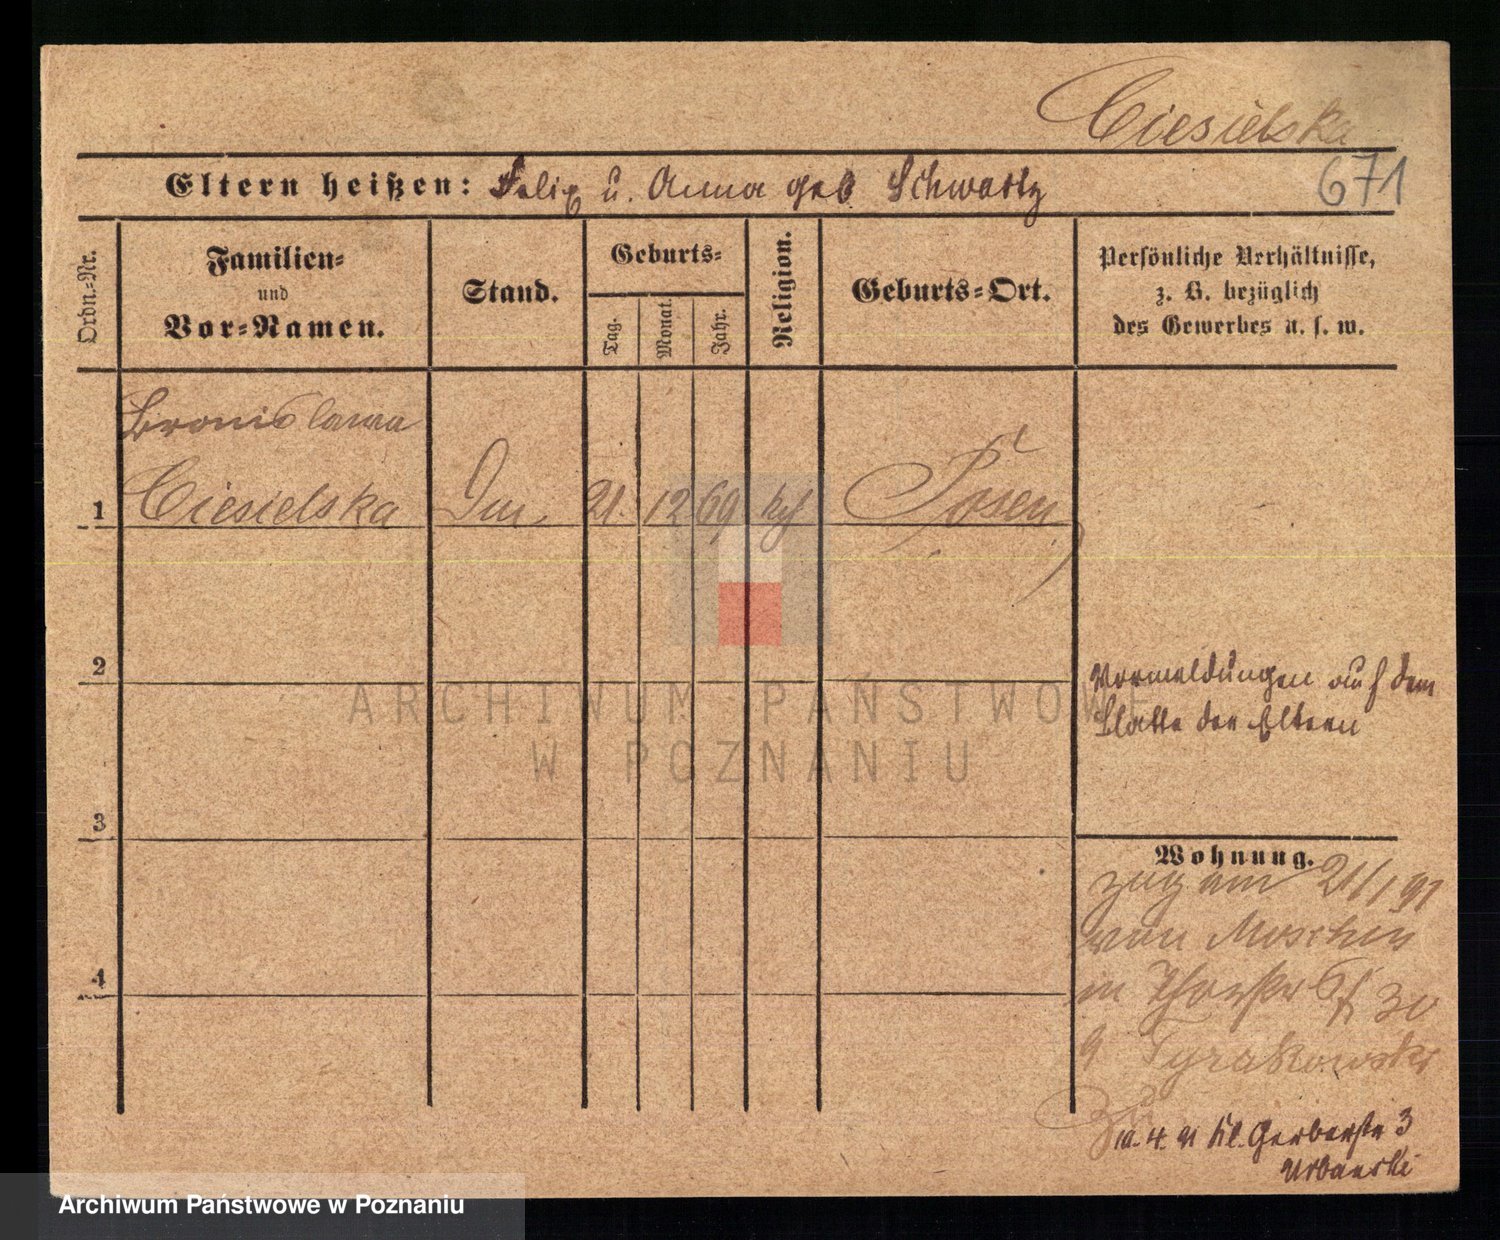 Ciesielska
Eltern heißen: Felix u. Anna geb Schwartz
671
Ordn.-Nr.
Familien-
und
Vor-Namen.
Stand.
Geburts-
Tag.
Monat.
Jahr.
Religion.
Geburts-Ort.
Persönliche Verhältnisse,
z. B. bezüglich
des Gewerbes u. s. w.
Bronislawa
1 Ciesielska 21. 12 69 kth Posen
2
Vormeldungen auf dem
Blatte der Eltern
3
Wohnung.
zug am 21/1 91
von Moschin
in 30
Tyrakowski
10. 4. 91 Kl. Gerberstr 3
Urbanski
4
ARCHIWUM PAŃSTWOWE
W POZNANIU
Archiwum Państwowe w Poznaniu